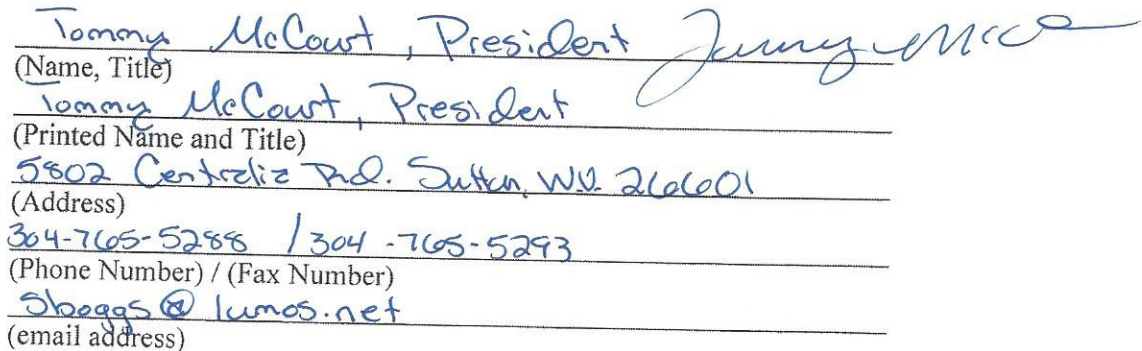 Tommy McCourt, President
(Name, Title)
Tommy McCourt, President
(Printed Name and Title)
5802 Centralia Rd. Sutton, W.V. 26601
(Address)
304-765-5288 / 304-765-5293
(Phone Number) / (Fax Number)
sboggs@lumos.net
(email address)